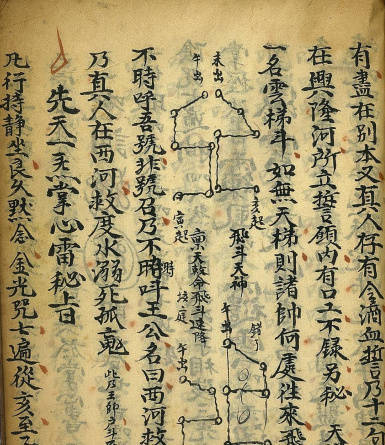 有盡在別本又真人存有酒血誓乃十二
在興隆河所立誓願內有口工不錄另秘 天
一名雲梯斗 如無天梯則諸帥何處往來飛
未出
午出
亥起
寅起
飛斗天神
錯了
午出
天敕命飛斗速降
午出
不時呼吾號非號召乃不時呼王公名曰西河救
乃真人在西河救度水溺死孤魂
先天一炁掌心雷秘旨
凡行持靜坐良久默念金光咒七遍從亥至